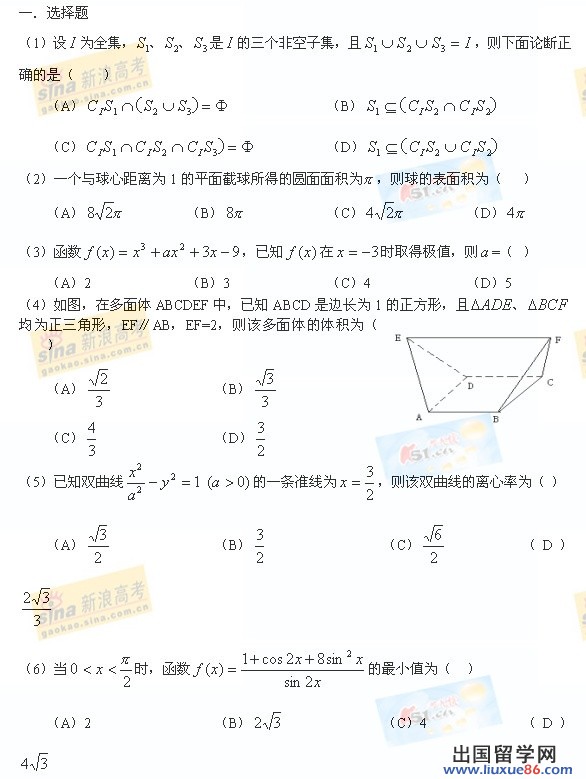 一．选择题
（1）设 I 为全集，S₁、S₂、S₃ 是 I 的三个非空子集，且 S₁∪S₂∪S₃ = I，则下面论断正
确的是（　　）
（A）C_I S₁∩(S₂∪S₃) = Φ　（B）S₁⊆(C_I S₂∩C_I S₂)
（C）C_I S₁∩C_I S₂∩C_I S₃) = Φ　（D）S₁⊆(C_I S₂∪C_I S₂)
（2）一个与球心距离为 1 的平面截球所得的圆面面积为π，则球的表面积为（　）
（A）8√2π　（B）8π　（C）4√2π　（D）4π
（3）函数 f(x) = x³ + ax² + 3x − 9，已知 f(x) 在 x = −3 时取得极值，则 a =（　）
（A）2　（B）3　（C）4　（D）5
（4）如图，在多面体 ABCDEF 中，已知 ABCD 是边长为 1 的正方形，且 ΔADE、ΔBCF
均为正三角形，EF∥AB，EF=2，则该多面体的体积为（
）
E F
D C
A B
（A）√2/3　（B）√3/3
（C）4/3　（D）3/2
（5）已知双曲线 x²/a² − y² = 1 (a > 0) 的一条准线为 x = 3/2，则该双曲线的离心率为（ ）
（A）√3/2　（B）3/2　（C）√6/2　（ D ）
2√3/3
（6）当 0 < x < π/2 时，函数 f(x) = (1+cos 2x+8sin² x)/(sin 2x) 的最小值为（　）
（A）2　（B）2√3　（C）4　（ D ）
4√3
sina 新浪高考
gaokao.sina.com.cn
出国留学网
www.liuxue86.com